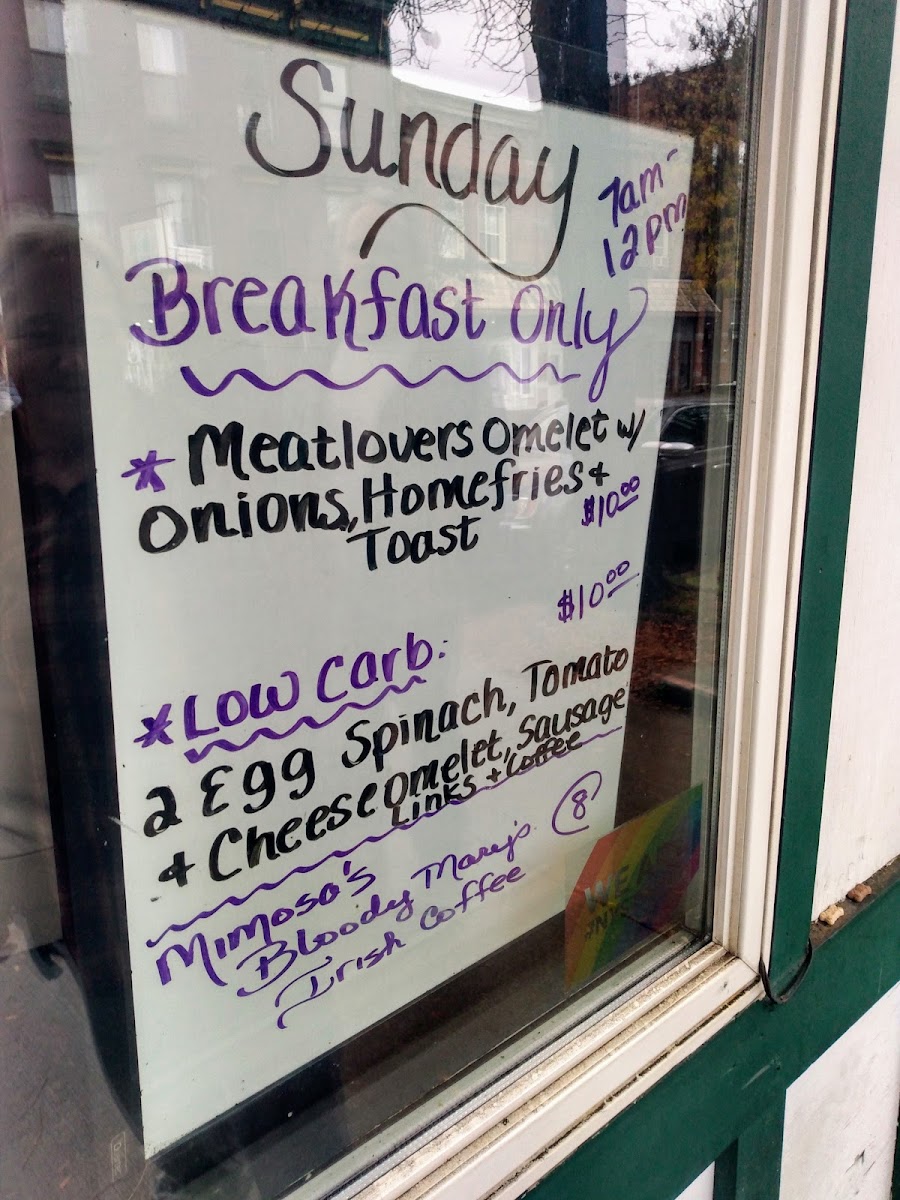 Sunday
7am-
12pm
Breakfast Only
* Meatlovers Omelet w/
Onions, Homefries +
$10.00
Toast
$10.00
* Low Carb:
2 Egg Spinach, Tomato
+ Cheese Omelet, Sausage
Links + Coffee
Mimosa's
Bloody Mary's 8
Irish Coffee
WE ARE